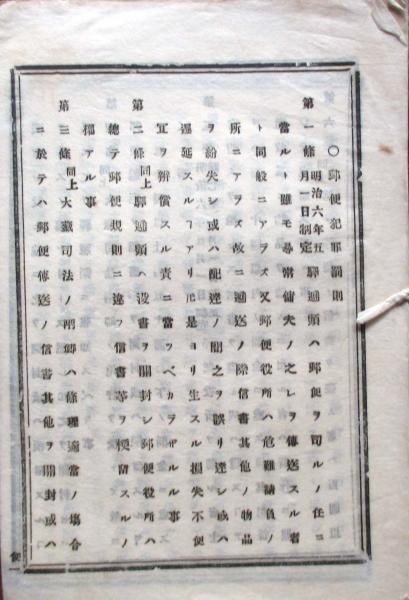 ○郵便犯罪罰則
第一條 明治六年五月一日制定 驛逓頭ハ郵便ヲ司ルノ任ニ
當ルト雖モ尋常傭夫ノ之レヲ傳送スル者
ト同般ニアラズ又郵便役所ハ危難請負ノ
所ニアラズ故ニ逓送ノ際信書其他ノ物品
ヲ紛失シ或ハ配達ノ間之ヲ誤リ達シ或ハ
遅延スルフアリ𪜈是ヨリ生スル損失不便
冝ヲ辨償スル責ニ當ツベカラザル事
第二條 同上 驛逓頭ハ没書ヲ開封シ郵便役所ハ
總テ郵便規則ニ違フ信書等ヲ穿鑿スルノ
權アル事
第三條 同上 大藏司法ノ両卿ハ條理適當ノ塲合
ニ於テハ郵便傳送ノ信書其他ヲ開封或ハ